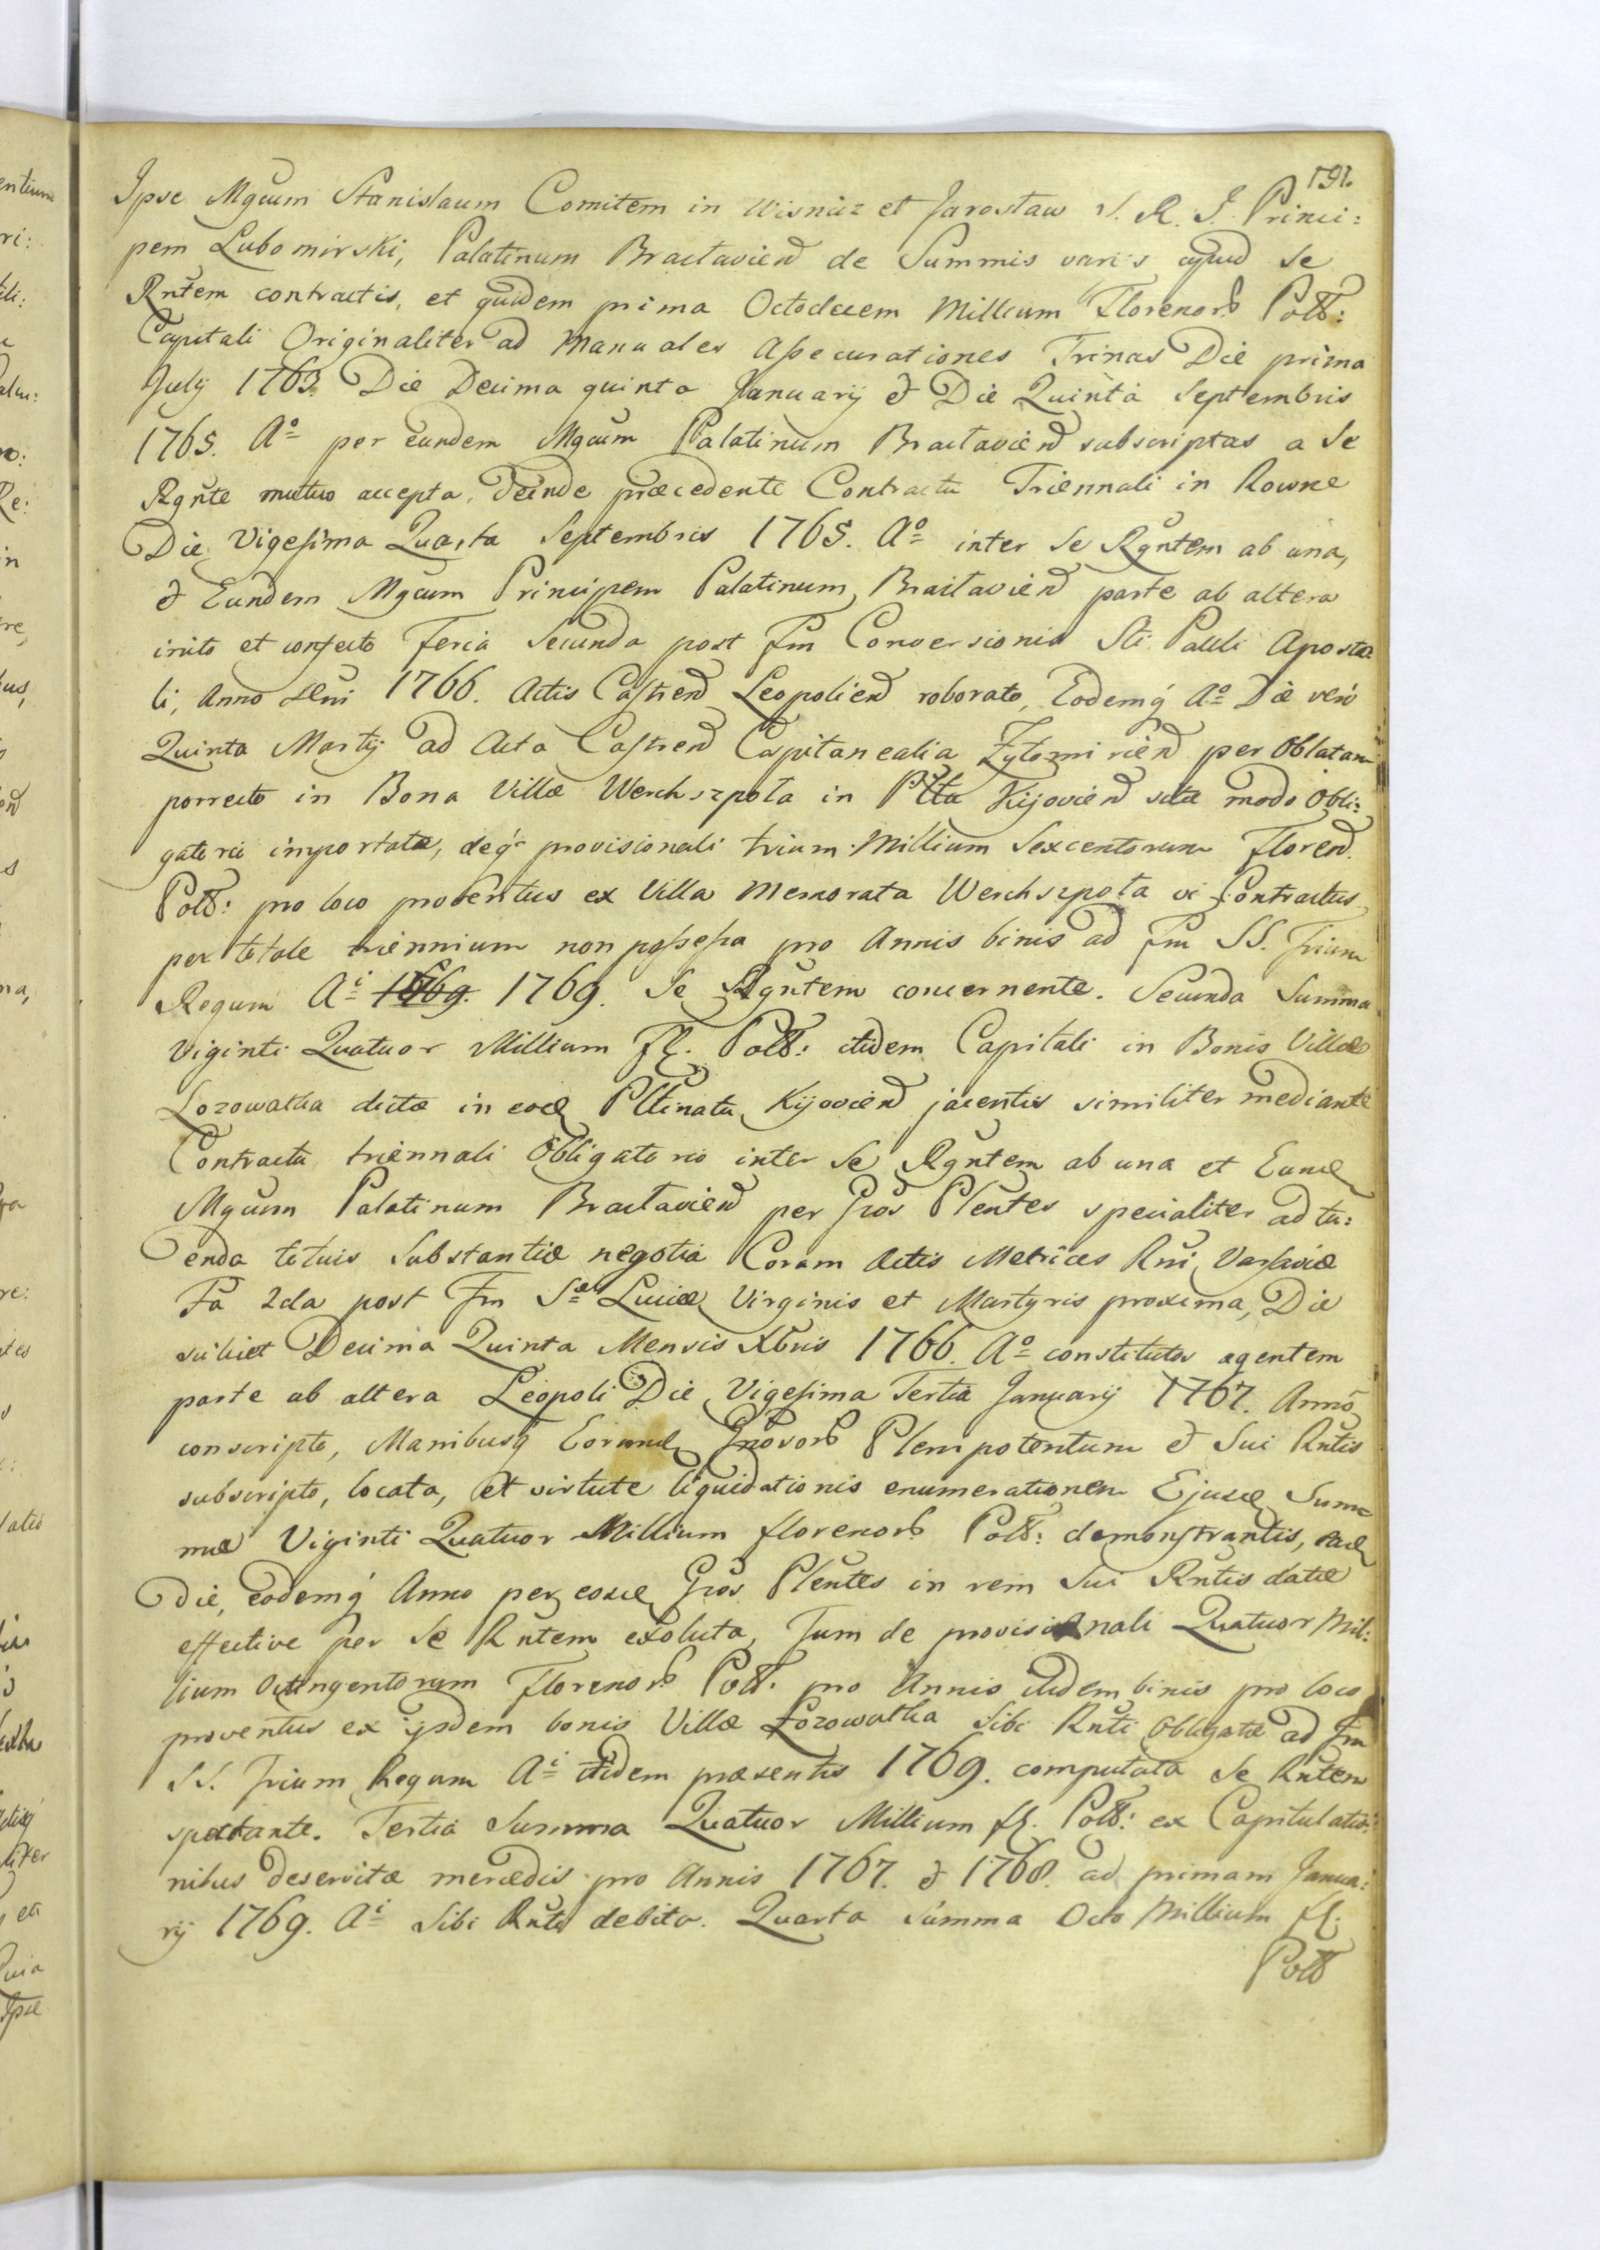 191.
Ipse Mgcum Stanislaum Comitem in Wisnicz et Jarosław S. R. I. Princi:
pem Lubomirski, Palatinum Braclavien de Summis varijs apud se
Rntem contractis, et quidem prima Octodecem Millium Florenor Poll:
Capitali Originaliter ad Manuales Assecurationes Trinas Die prima
July 1763. Die Decima quinta Januarij & Die Quinta Septembris
1765. Aº per eundem Mgcum Palatinum Braclavien subscriptas a Se
Rgnte mutuo accepta, deinde præcedente Contractu Triennali in Rowne
Die Vigesima Quarta Septembris 1765. Aº inter Se Rgntem ab una,
& Eundem Mgcum Principem Palatinum Braclavien parte ab altera
inito et confecto Feria Secunda post Fm Conversionis Sti Pauli Aposto
li, Anno Dni 1766. Actis Castren Leopolien roborato, Eodemq Aº Die vero
Quinta Martij ad Acta Castren Capitanealia Zytomirien per Oblatam
porrecto in Bona Villæ Werchszpota in Pltu Kijovien sitæ modo Obli:
gatorio importata, deq provisionali trium Millium Sexcentorum Floren
Poll: pro loco proventus ex Villa Memorata Werchszpota vi Contractus
per totale triennium non possessa pro Annis binis ad Fm SS. Trium
Regum Ai 1769. 1769. Se Rgntem concernente. Secunda Summa
Viginti Quatuor Millium fl. Poll: itidem Capitali in Bonis Villæ
Lozowatka dictæ in eod Pltinatu Kijovien jacentis similiter mediante
Contractu triennali Obligatorio inter Se Rgntem ab una et Eund
Mgcum Palatinum Braclavien per Gsos Plentes specialiter ad tu:
enda totuis Substantiæ negotia Coram Actis Metrices Rni Varsaviæ
Fa 2da post Fm Sæ Luciæ Virginis et Martyris proxima, Die
scilicet Decima Quinta Mensis Xbris 1766. Aº constitutos agentem
parte ab altera Leopoli Die Vigesima Tertia Januarij 1767. Anno
conscripto, Manibusq Eorund Gnosor Plenipotentum & Sui Rntis
subscripto, locata, et virtute liquidationis enumerationem Ejusd Sum
mæ Viginti Quatuor Millium florenor Poll: demonstrantis, ead
Die, eodemq Anno per eosd Gsos Plentes in rem Sui Rntis datæ
effective per Se Rntem exoluta, Tum de provisionali Quatuor Mil:
lium Octingentorum Florenor Poll: pro Annis itidem binis pro loco
proventus ex ijsdem bonis Villæ Lozowatka Sibi Rnti Obligatæ ad Fm
SS. Trium Regum Ai itidem præsentis 1769. computata Se Rntem
spectante. Tertia Summa Quatuor Millium fl. Poll: ex Capitulatio:
nibus deservitæ mercedis pro Annis 1767. & 1768. ad primam Janua:
rij 1769. Ai Sibi Rnti debita. Quarta Summa Octo Millium fl.
Poll